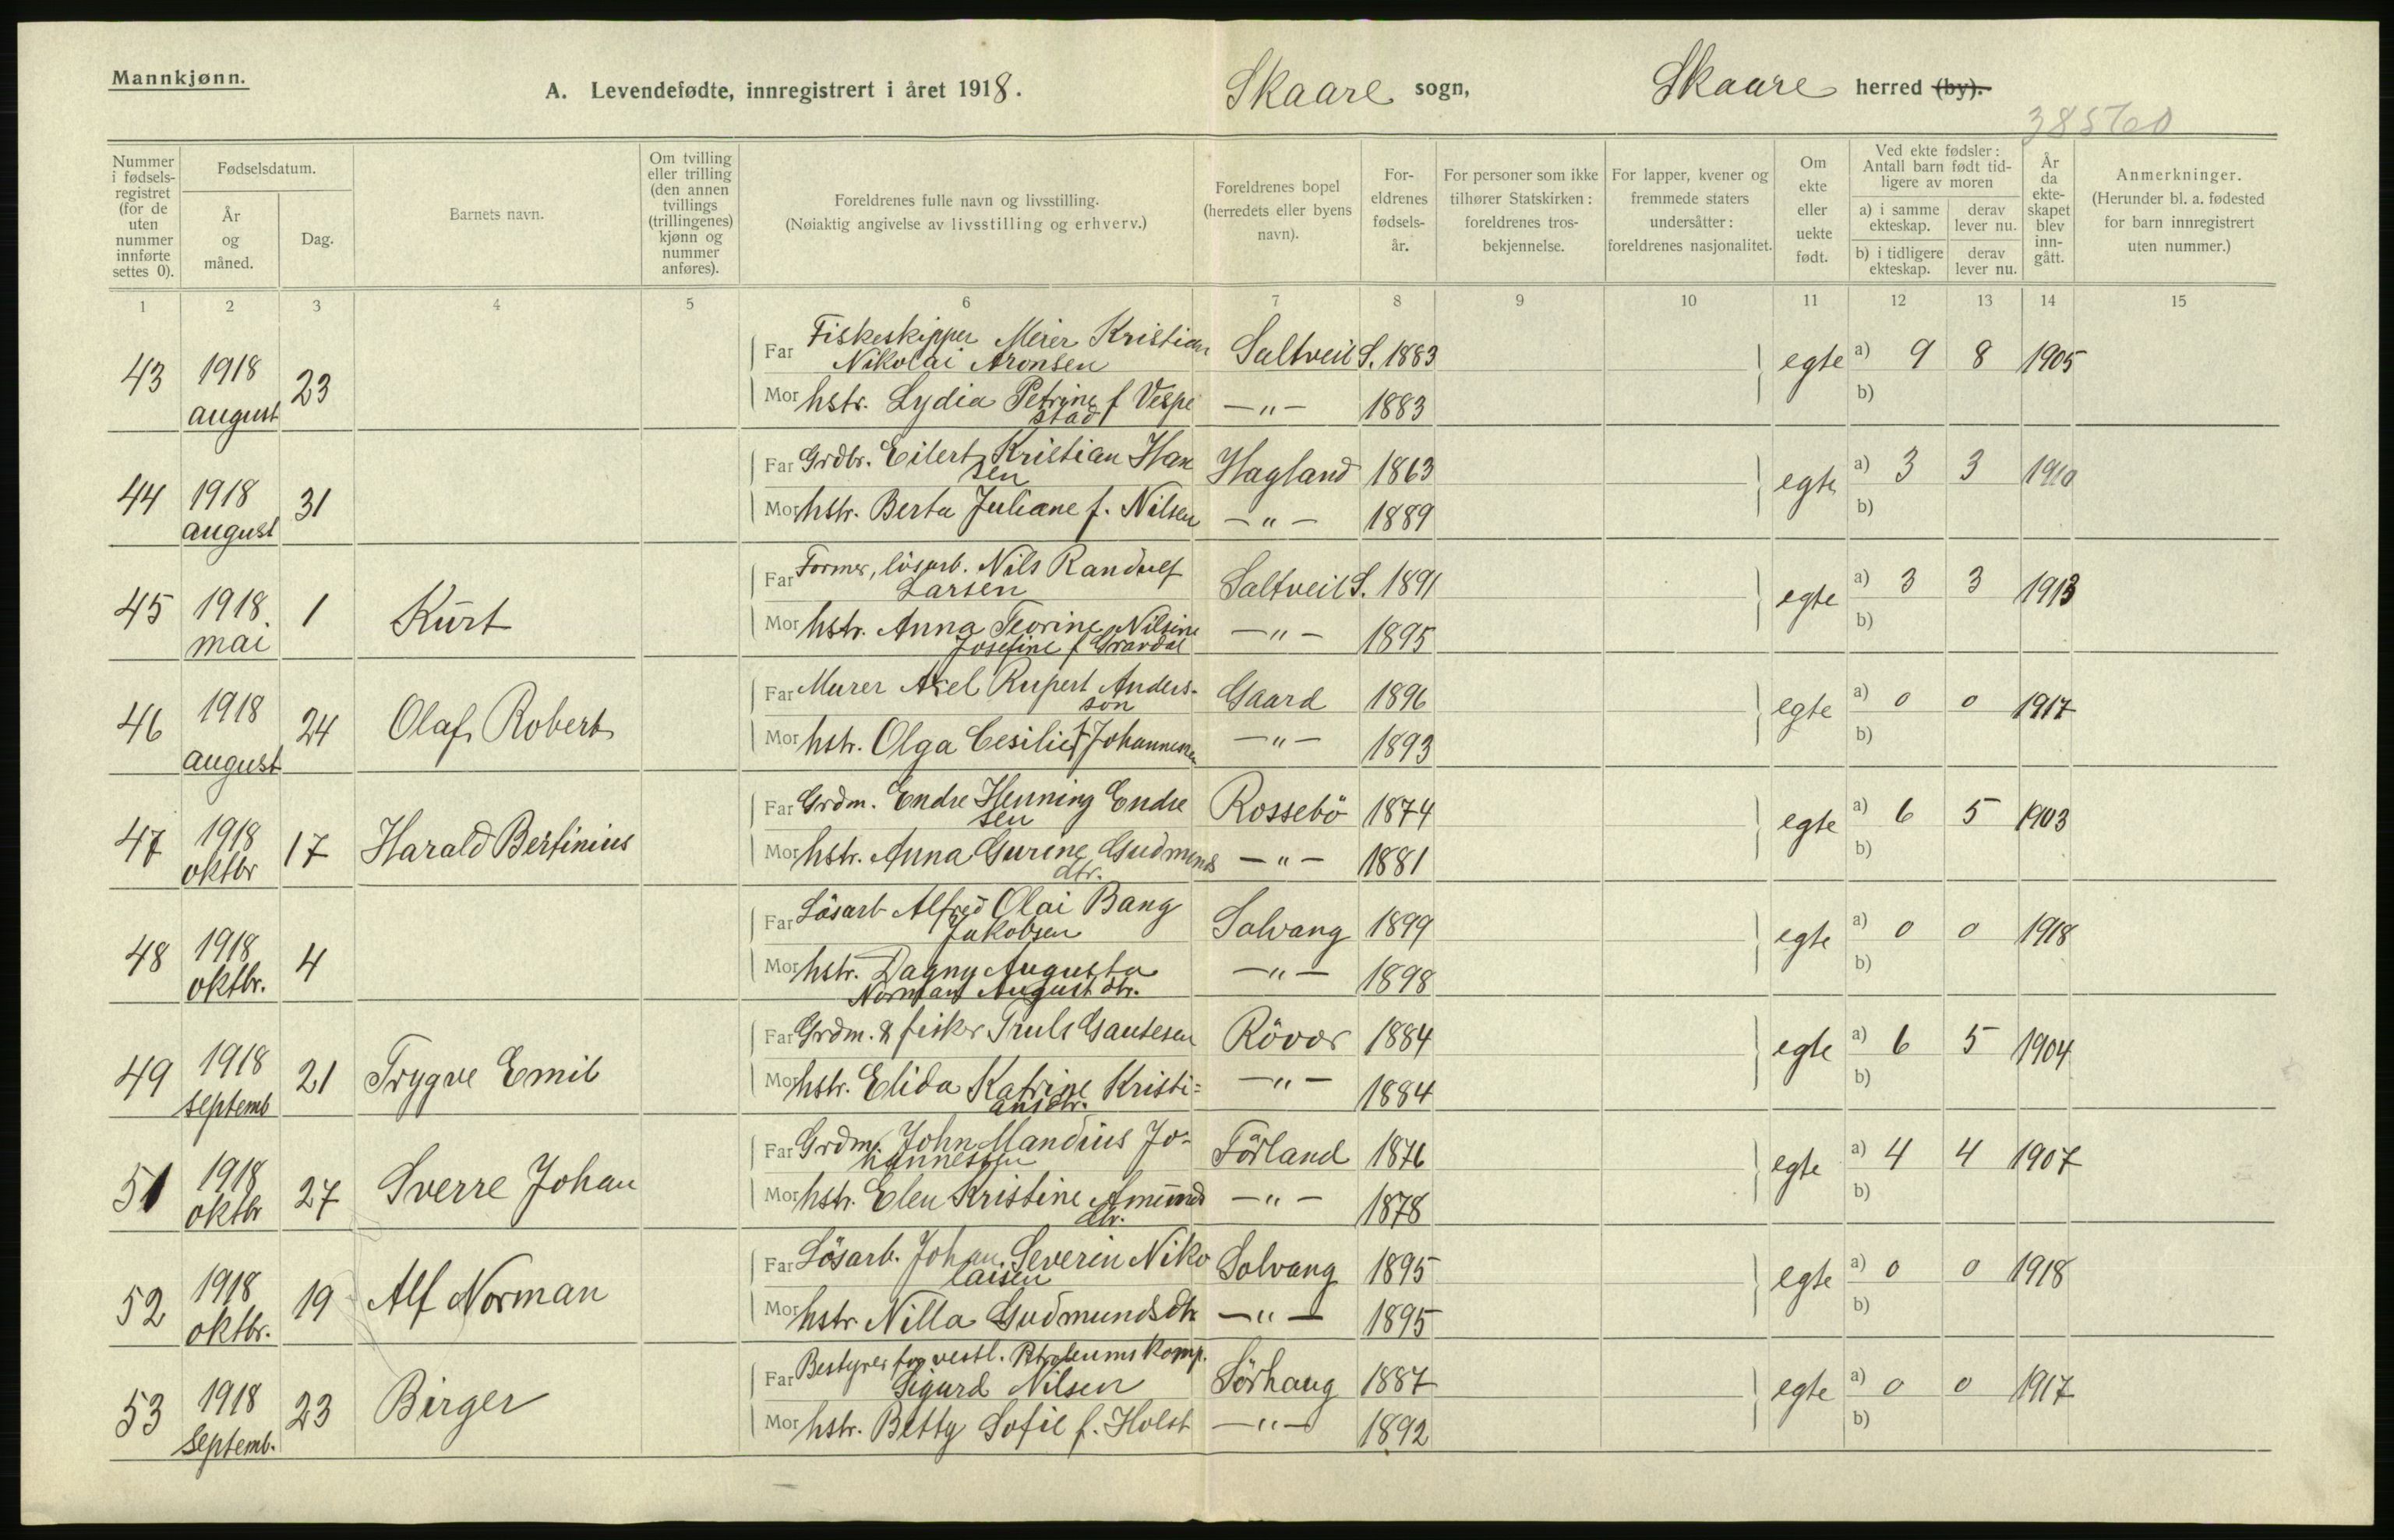 Mannkjønn.
A. Levendefødte, innregistrert i året 1918.
Skaare sogn,
Skaare herred (by).
38560
Nummer i fødsels-registret (for de uten nummer innførte settes 0).
Fødselsdatum.
År og måned.
Dag.
Barnets navn.
Om tvilling eller trilling (den annen tvillings (trillingenes) kjønn og nummer anføres).
Foreldrenes fulle navn og livsstilling.
(Nøiaktig angivelse av livsstilling og erhverv.)
Foreldrenes bopel (herredets eller byens navn).
For-eldrenes fødsels-år.
For personer som ikke tilhører Statskirken: foreldrenes tros-bekjennelse.
For lapper, kvener og fremmede staters undersåtter: foreldrenes nasjonalitet.
Om ekte eller uekte født.
Ved ekte fødsler: Antall barn født tid-ligere av moren
a) i samme ekteskap.
derav lever nu.
b) i tidligere ekteskap.
derav lever nu.
År da ekte-skapet blev inn-gått.
Anmerkninger.
(Herunder bl. a. fødested for barn innregistrert uten nummer.)
1 2 3 4 5 6 7 8 9 10 11 12 13 14 15
43 1918 august 23
Far Fiskeskipper Meier Kristian Nikolai Aronsen Saltveit S. 1883 egte a) 9 8 1905
Mor hstr. Lydia Petrine f Vespestad —"— 1883 b)
44 1918 august 31
Far Grdbr. Eilert Kristian Hansen Hagland 1863 egte a) 3 3 1910
Mor hstr. Berta Juliane f. Nilsen —"— 1889 b)
45 1918 mai 1 Kurt
Far Former, løsarb. Nils Randulf Larsen Saltveit S. 1891 egte a) 3 3 1913
Mor hstr. Anna Teorine Nilsine Josefine f Gravdal —"— 1895 b)
46 1918 august 24 Olaf Robert
Far Murer Axel Rupert Andersson Gaard 1896 egte a) 0 0 1917
Mor hstr. Olga Cesilie f Johannesen —"— 1893 b)
47 1918 oktbr 17 Harald Bertinius
Far Grdm. Endre Henning Endresen Rossebö 1874 egte a) 6 5 1903
Mor hstr. Anna Gurine Gudmundsdtr. —"— 1881 b)
48 1918 oktbr. 4
Far Lösarb Alfred Olai Bang Jakobsen Solvang 1899 egte a) 0 0 1918
Mor hstr. Dagny Augusta Norman Augustdtr. —"— 1898 b)
49 1918 septemb 21 Trygve Emil
Far Grdm. & fisker Truls Gautesen Rövær 1884 egte a) 6 5 1904
Mor hstr. Elida Katrine Kristi=ansdtr. —"— 1884 b)
51 1918 oktbr 27 Sverre Johan
Far Grdm. John Mandius Jo-hannessen Förland 1876 egte a) 4 4 1907
Mor hstr. Elen Kristine Amundsdtr. —"— 1878 b)
52 1918 oktbr. 19 Alf Norman
Far Lösarb. Johan Severin Nikolaisen Solvang 1895 egte a) 0 0 1918
Mor hstr Nilla Gudmundsdtr —"— 1895 b)
53 1918 septemb. 23 Birger
Far Bestyrer for vestl. Petroleums Komp. Sigurd Nilsen Sörhaug 1887 egte a) 0 0 1917
Mor hstr. Betty Sofie f. Holst —"— 1892 b)